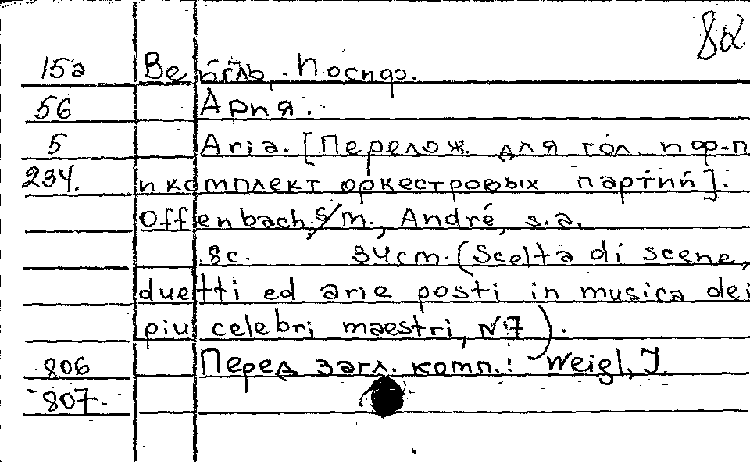 802
15а Вейгль, Иосиф.
56 Ария.
5 Aria. [Перелож. для гол. и ф-п
234. и комплект оркестровых партий].
Offenbach, s/m., André, s.a.
8с. 34cm. (Scelta di scene,
duetti ed arie posti in musica dei
piu celebri maestri, N7).
806 Перед загл. комп.: Weigl, J.
807.